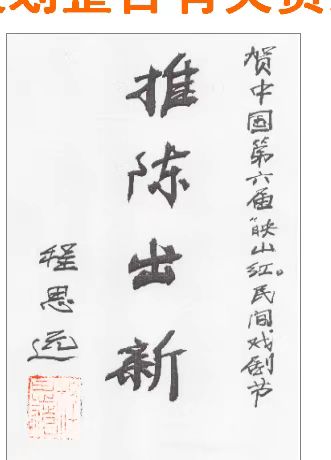 划整合有关资
贺中国第六届“映山红”民间戏剧节
推陈出新
程思远